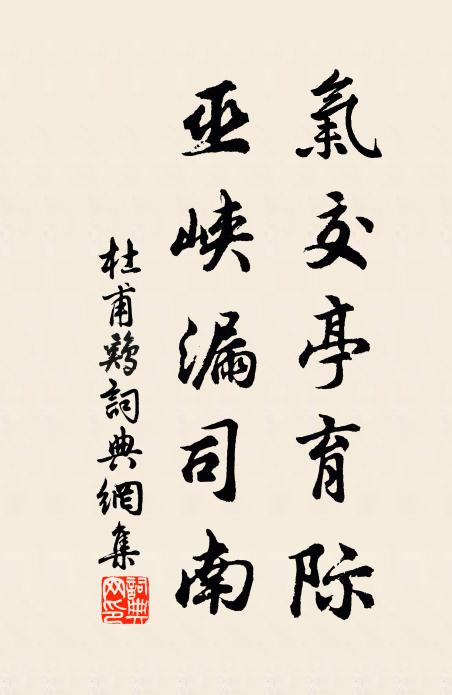 氣交亭育际
巫峽漏司南
杜甫鷄詞典網集
詞典网印